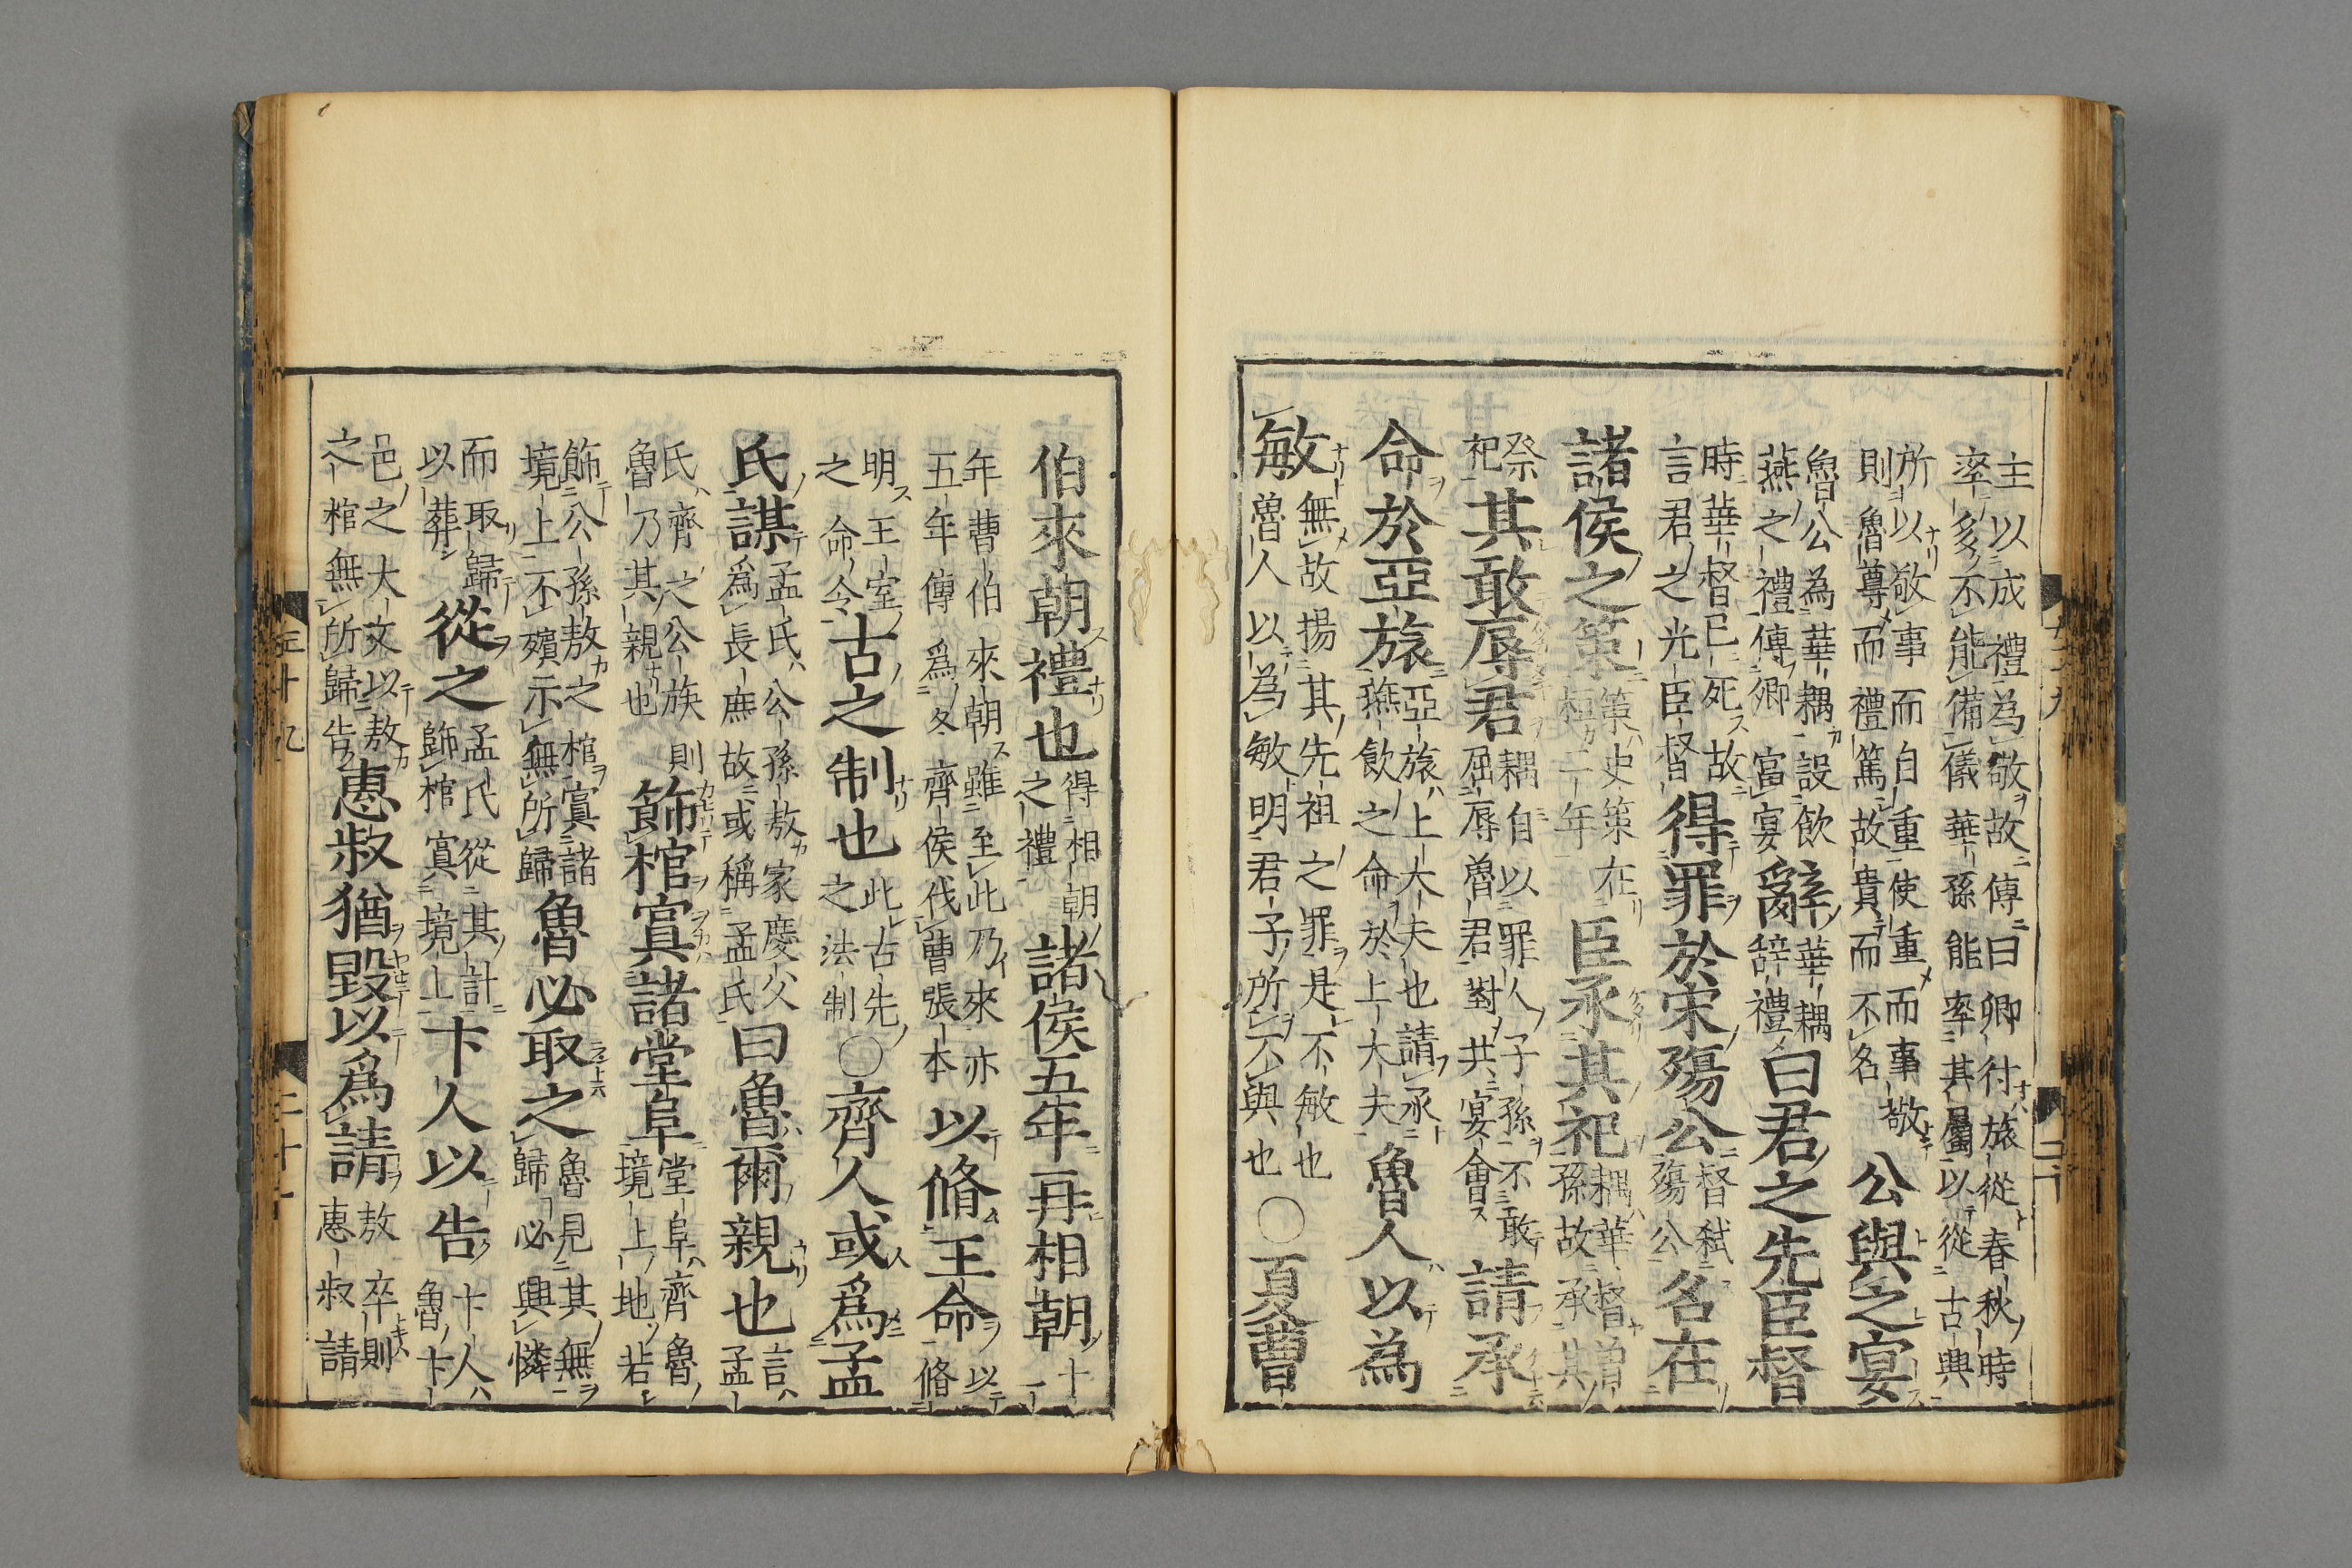 主以成禮為敬故傳曰卿行旅從春秋時
率多不能備儀華孫能率其屬以從古典
所以敬事而自重使重而事敬
則魯尊而禮篤故貴而不名
公與之宴
魯公為華耦設飲
燕之禮傳卿富宴
辭
華耦
辞禮
曰君之先臣督
時華督已死故
言君之光臣督
得罪於宋殤公
督弑
殤公
名在
諸侯之策
策史策在
桓二年
臣承其祀
耦華督曽
孫故承其
祭
祀
其敢辱君
耦自以罪人子孫不敢
屈辱魯君對共宴會
請承
命於亞旅
亞旅上大夫也請承
燕飲之命於上大夫
魯人以為
敏
無故揚其先祖之罪是不敏也
魯人以為敏明君子所不與也
○夏曹
伯來朝禮也
得相朝
之禮
諸侯五年再相朝
十
一
年曹伯來朝雖至此乃來亦
五年傳為冬齊侯伐曹張本
以脩王命
以
脩
明王室
之命令
古之制也
此古先
之法制
○齊人或為孟
氏謀
孟氏公孫敖家慶父
為長庶故或稱孟氏
曰魯爾親也
言
孟
氏齊之公族則
魯乃其親也
飾棺寘諸堂阜
堂阜齊魯
境上地若
飾公孫敖之棺寘諸
境上不殯示無所歸
魯必取之
魯見其無
歸必興憐
而取歸
以葬
從之
孟氏從其計
飾棺寘境上
卞人以告
卞人
魯卞
邑之大夫以敖
之棺無所歸告
惠叔猶毀以為請
敖卒則
惠叔請
五十九
二十一